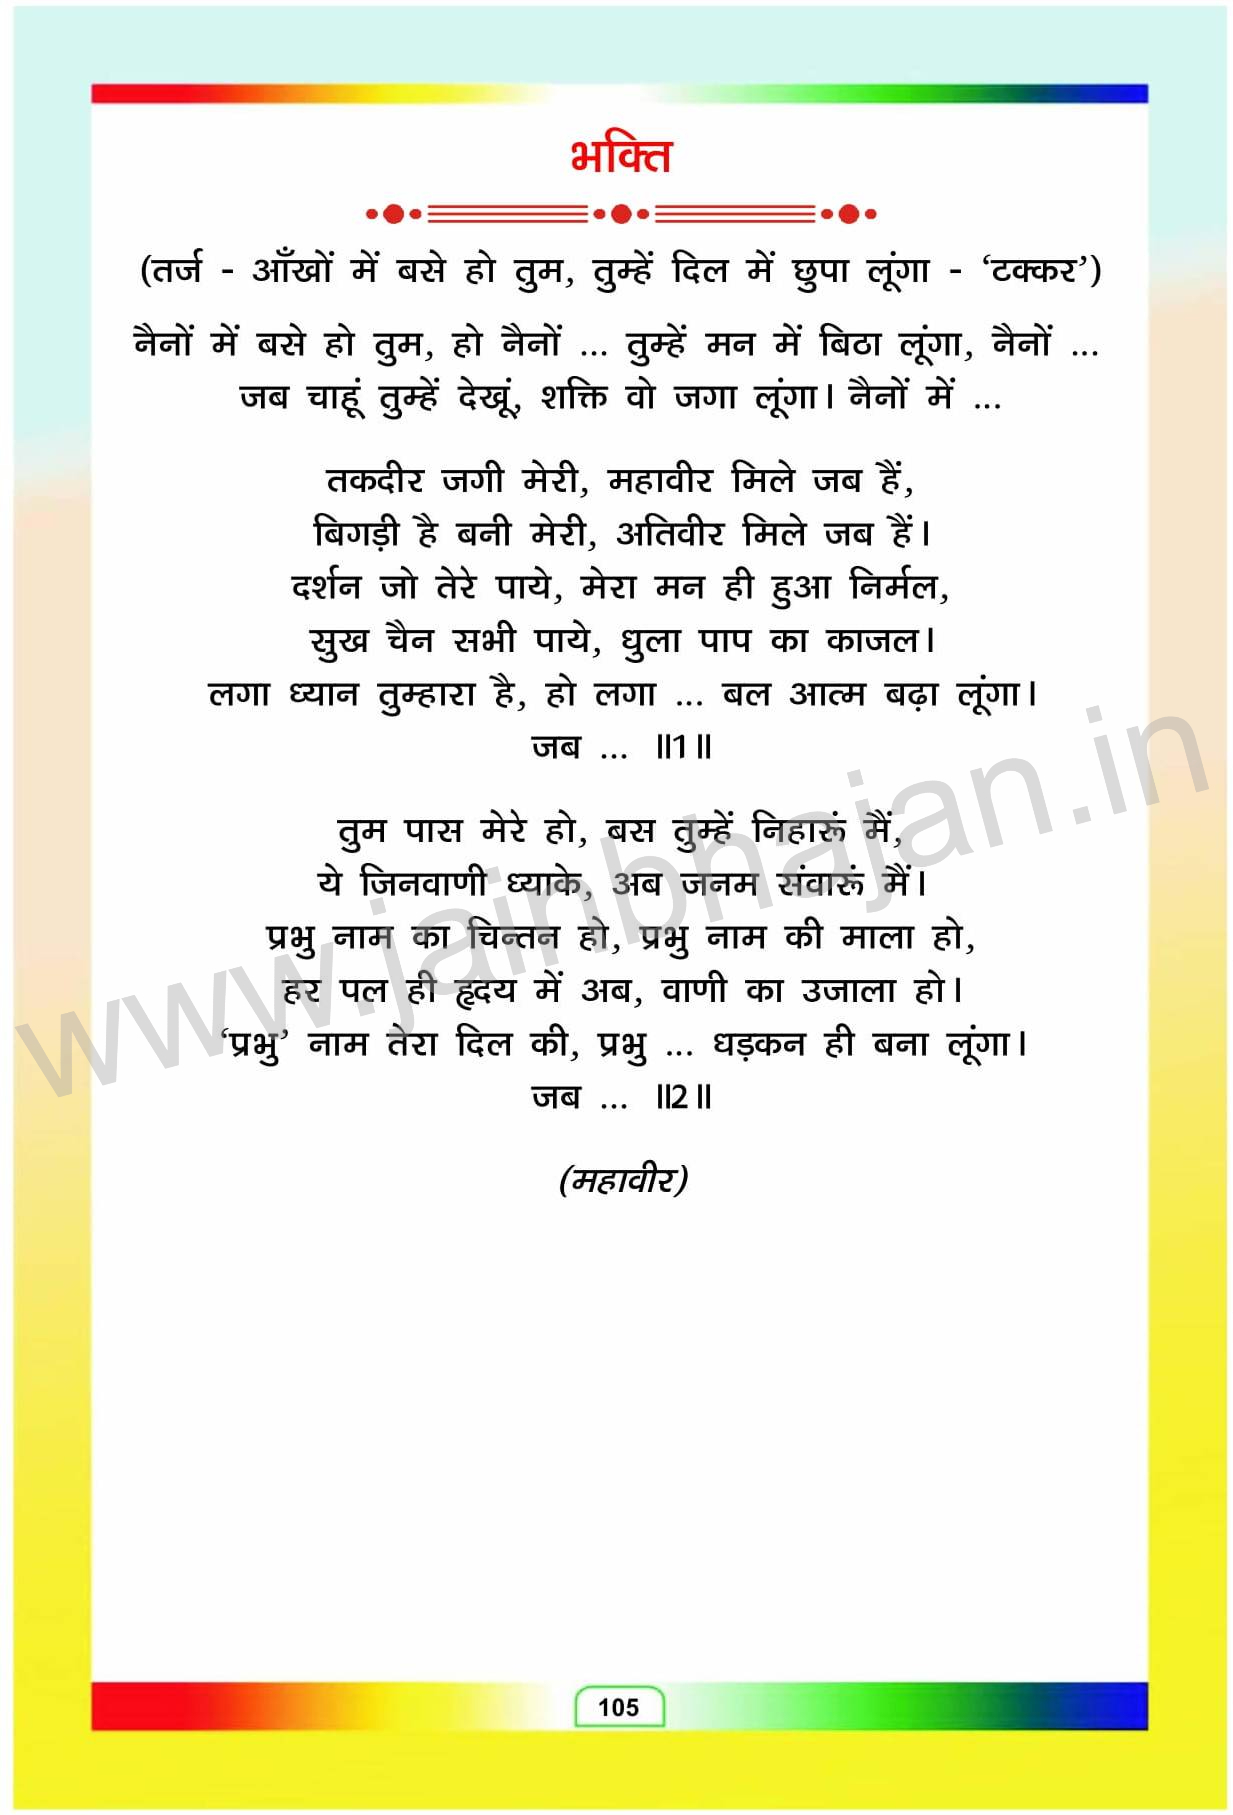 भक्ति
(तर्ज - आँखों में बसे हो तुम, तुम्हें दिल में छुपा लूंगा - ‘टक्कर’)
नैनों में बसे हो तुम, हो नैनों ... तुम्हें मन में बिठा लूंगा, नैनों ...
जब चाहूं तुम्हें देखूं, शक्ति वो जगा लूंगा। नैनों में ...
तकदीर जगी मेरी, महावीर मिले जब हैं,
बिगड़ी है बनी मेरी, अतिवीर मिले जब हैं।
दर्शन जो तेरे पाये, मेरा मन ही हुआ निर्मल,
सुख चैन सभी पाये, धुला पाप का काजल।
लगा ध्यान तुम्हारा है, हो लगा ... बल आत्म बढ़ा लूंगा।
जब ... ॥1॥
तुम पास मेरे हो, बस तुम्हें निहारूं मैं,
ये जिनवाणी ध्याके, अब जनम संवारूं मैं।
प्रभु नाम का चिन्तन हो, प्रभु नाम की माला हो,
हर पल ही हृदय में अब, वाणी का उजाला हो।
‘प्रभु’ नाम तेरा दिल की, प्रभु ... धड़कन ही बना लूंगा।
जब ... ॥2॥
(महावीर)
www.jainbhajan.in
105